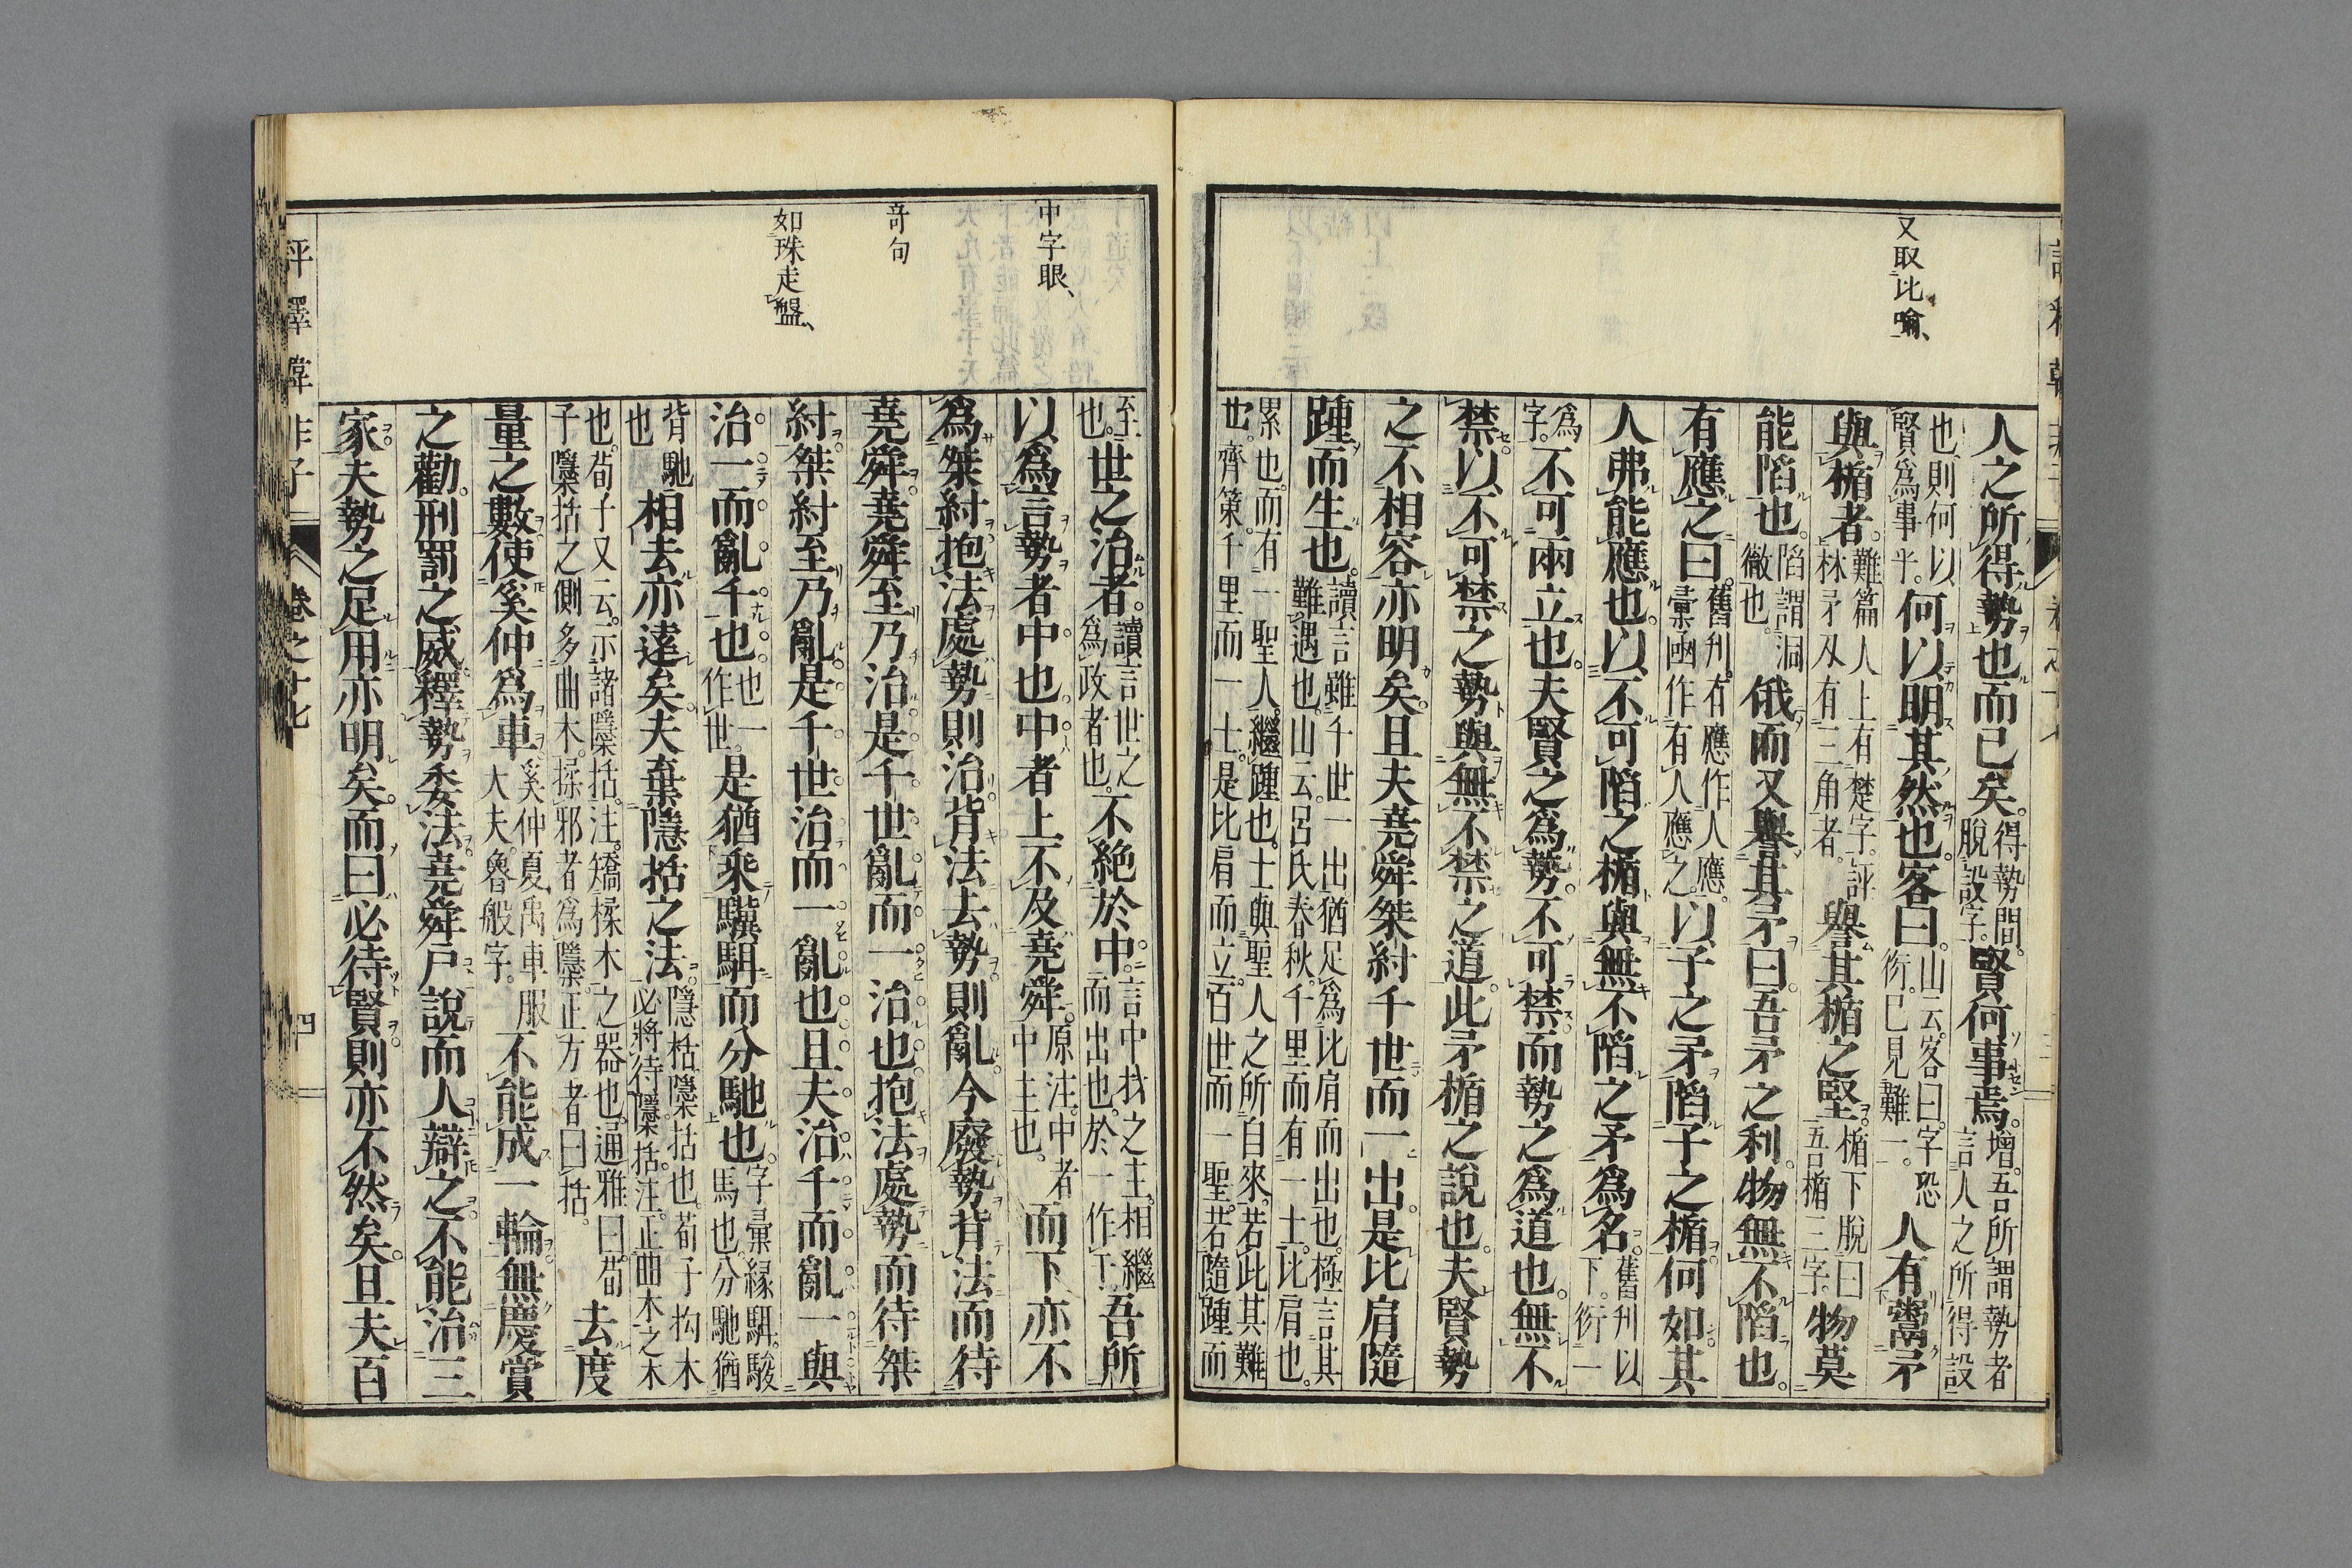 又取比喻、
人之所得勢也而已矣。得勢間。脫設字。賢何事焉。增。吾所謂勢者言人之所得設
也則何以賢爲事乎。何以明其然也。客曰。山云。客曰。字恐衍。已見難一。人有鬻矛
與楯者。難篇人上有楚字。評林矛及有三角者。譽其楯之堅。楯下脫曰吾楯三字。物莫
能陷也。陷謂洞徹也。俄而又譽其矛曰。吾矛之利。物無不陷也。
有應之曰。舊刋。有應作人應。彙函作有人應之。以子之矛。陷子之楯何如。其
人弗能應也。以不可陷之楯。與無不陷之矛。爲名。舊刋以下。衍一
爲字。不可兩立也。夫賢之爲勢。不可禁。而勢之爲道也。無不
禁。以不可禁之勢。與無不禁之道。此矛楯之說也。夫賢勢
之不相容亦明矣。且夫堯舜桀紂千世而一出。是比肩隨
踵而生也。讀言雖千世一出猶足爲比肩而出也。極言其難遇也。山云。呂氏春秋。千里而有一士。比肩也。
累也。而有一聖人。繼踵也。士與聖人之所自來。若此其難也。齊策。千里而一士。是比肩而立。百世而一聖。若隨踵而
中字眼、
奇句
如珠走盤、
至也。世之治者。讀言世之爲政者也。不絕於中。言中材之主。相繼而出也。於一作于。吾所
以爲言勢者中也。中者上不及堯舜。原注。中者中主也。而下亦不
爲桀紂。抱法處勢則治。背法去勢則亂。今廢勢背法而待
堯舜。堯舜至乃治。是千世亂而一治也。抱法處勢而待桀
紂。桀紂至乃亂。是千世治而一亂也。且夫治千而亂一。與
治一而亂千也。也一作世。是猶乘驥駬而分馳也。字彙綠駬。駿馬也。分馳猶
背馳也相去亦遠矣。夫棄隱栝之法。隱栝。檃栝也。荀子枸木必將待檃栝。注。正曲木之木
也。荀子又云。示諸檃栝。注。矯揉木之器也。通雅曰。荀子檃栝之側多曲木。揉邪者爲檃。正方者曰栝。去度
量之數。使奚仲爲車。奚仲夏禹車服大夫。魯般字。不能成一輪。無慶賞
之勸。刑罰之威。釋勢委法。堯舜戸說而人辯之。不能治三
家。夫勢之足用亦明矣。而曰必待賢。則亦不然矣。且夫百
評釋韓非子
卷之十七
四